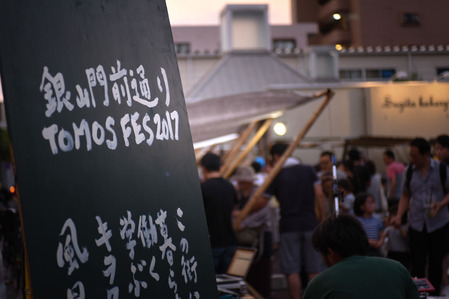 銀山門前通り
TOMOS FES 2017
この街
暮ら
働く
学ぶ
キラ
風
Sugita bakery